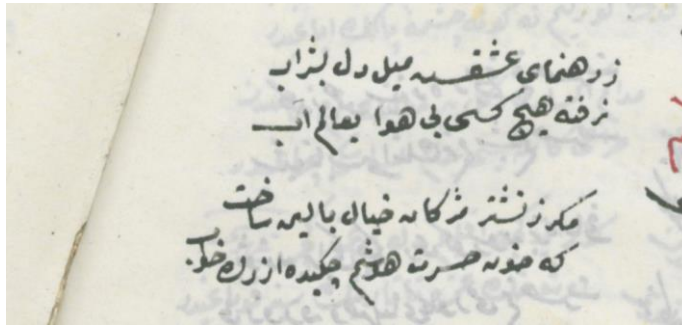 ز رهنمای عشقست میل دل بشراب
نرفته هیچ کسی بی هوا بعالم آب
مکر ز نشتر مژکان خیال بالین ساخت
که خون حسرت هوشم چکیده از رک خواب